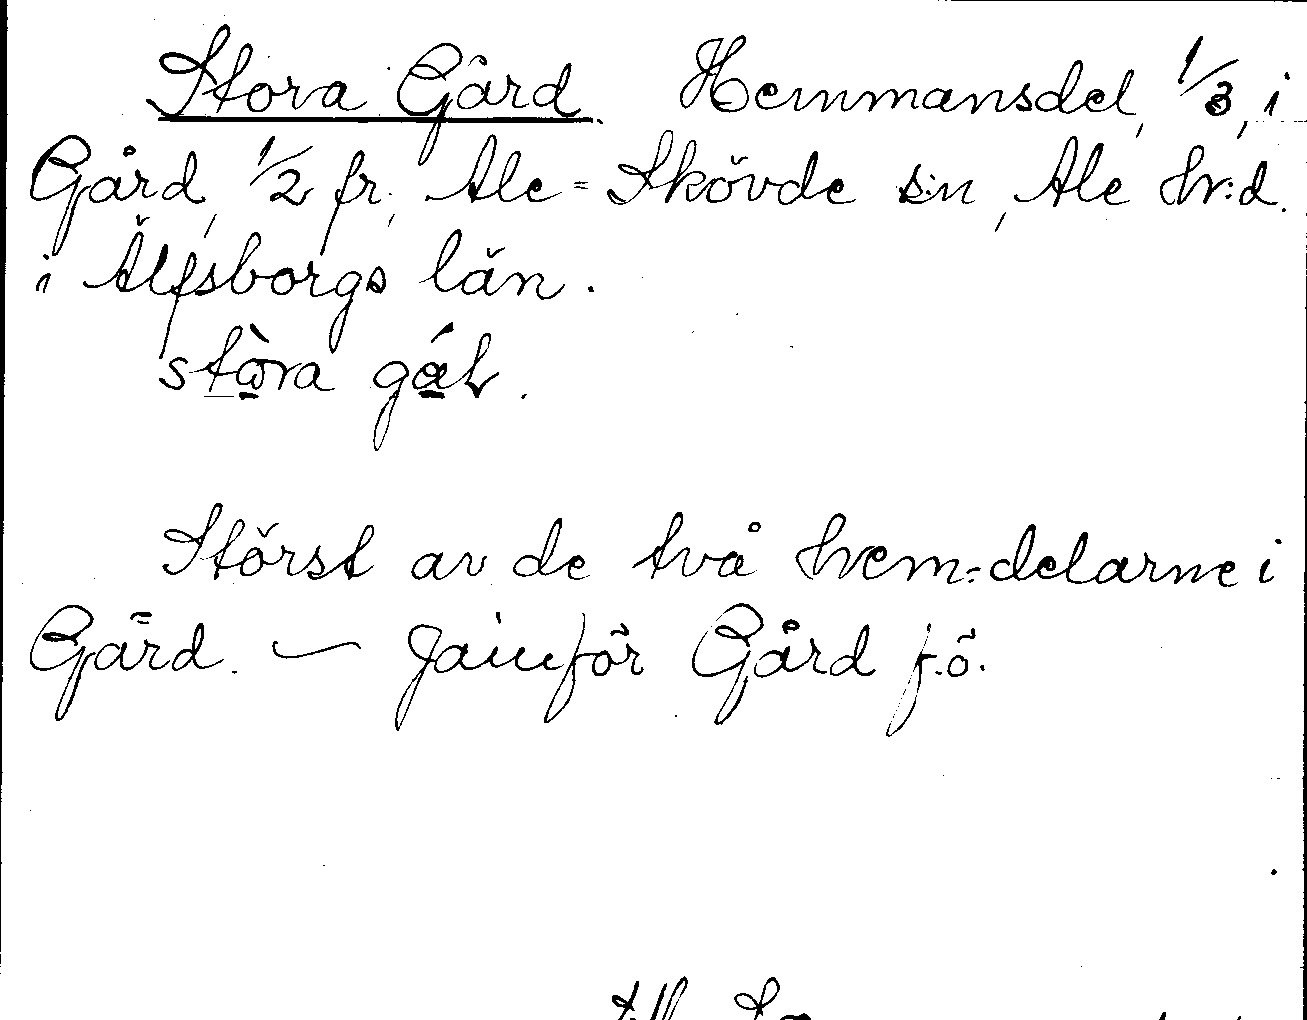 Stora Gård. Hemmansdel, 1/3, i
Gård, 1/2 fr., Ale-Skövde s:n, Ale hr:d.
i Älfsborgs län.
Störst av de två hem:delarne i
Gård. — Jämför Gård f.ö.